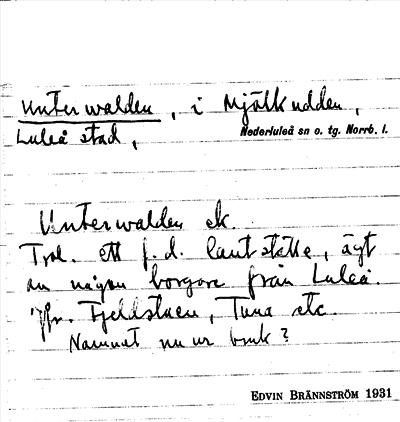 Unterwalden, i Mjölkudden,
Luleå stad,
Nederluleå sn o. tg. Norrb. l.
Unterwalden ek.
Trol. ett f.d. lantställe, ägt
av någon borgare från Luleå.
Jfr. Fjeldstuen, Tuna etc.
Namnet nu ur bruk?
EDVIN BRÄNNSTRÖM 1931